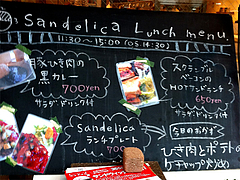 Sandelica Lunch menu
11:30～15:00 (OS.14:30)
ひき肉の
黒カレー
700yen
サラダ・ドリンク付
スクランブル
ベーコンの
HOTサンドイッチ
650yen
サラダ・ドリンク付
Sandelica
ランチプレート
700
今日のおかず
ひき肉とポテトの
ケチャップ炒め